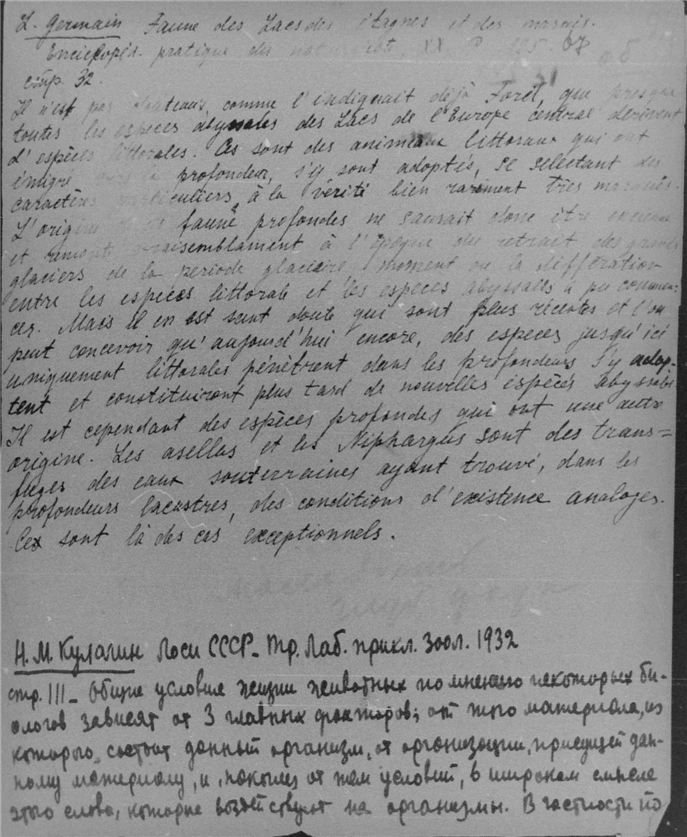 L. Germain Faune des Lacs des étagnes et des marais.
Enciclopéd. pratique du naturalist. XX. P.
стр. 32.
Il n'est pas douteux, comme l'indiquait déjà Forel, que presque
toutes les espèces abyssales des Lacs de l'Europe central dérivent
d'espèces littorales. Ces sont des animaux littoraux qui ont
émigré profondeur, s'y sont adoptés, se selectant des
caractères particuliers, à la vérité bien rarement très marqués.
L'origine faune profondes ne saurait donc être
et remonte vraisemblamant à l'époque du retrait des grands
glaciers de la période glaciaire, moment ou la différation
entre les espèces littorale et les espèces abyssales a pu commen-
cer. Mais il en est sans doute qui sont plus récentes et l'on
peut concevoir qu'aujourd'hui encore, des espèces jusqu'ici
uniquement littorales pénètrent dans les profondeurs s'y adop-
tent et constitueront plus tard de nouvelles espèces abyssales
Il est cependant des espèces profondes qui ont une autre
origine. Les asellus et les Niphargus sont des trans=
fuges des eaux souterraines ayant trouvé, dans les
profondeurs lacustres, des conditions d'existence analoges.
Ces sont là des cas exceptionnels.
Н. М. Кулагин Лоси СССР_ Тр. Лаб. прикл. зоол. 1932
стр. III_ Общие условие жизни животных по мнению некоторых би-
ологов зависят от 3 главных факторов; от того материала, из
которого состоит данный организм, от организации, присущей дан-
ному материалу, и, наконец от тем условий, в широком смысле
этого слова, которые воздействуют на организмы. В частности по